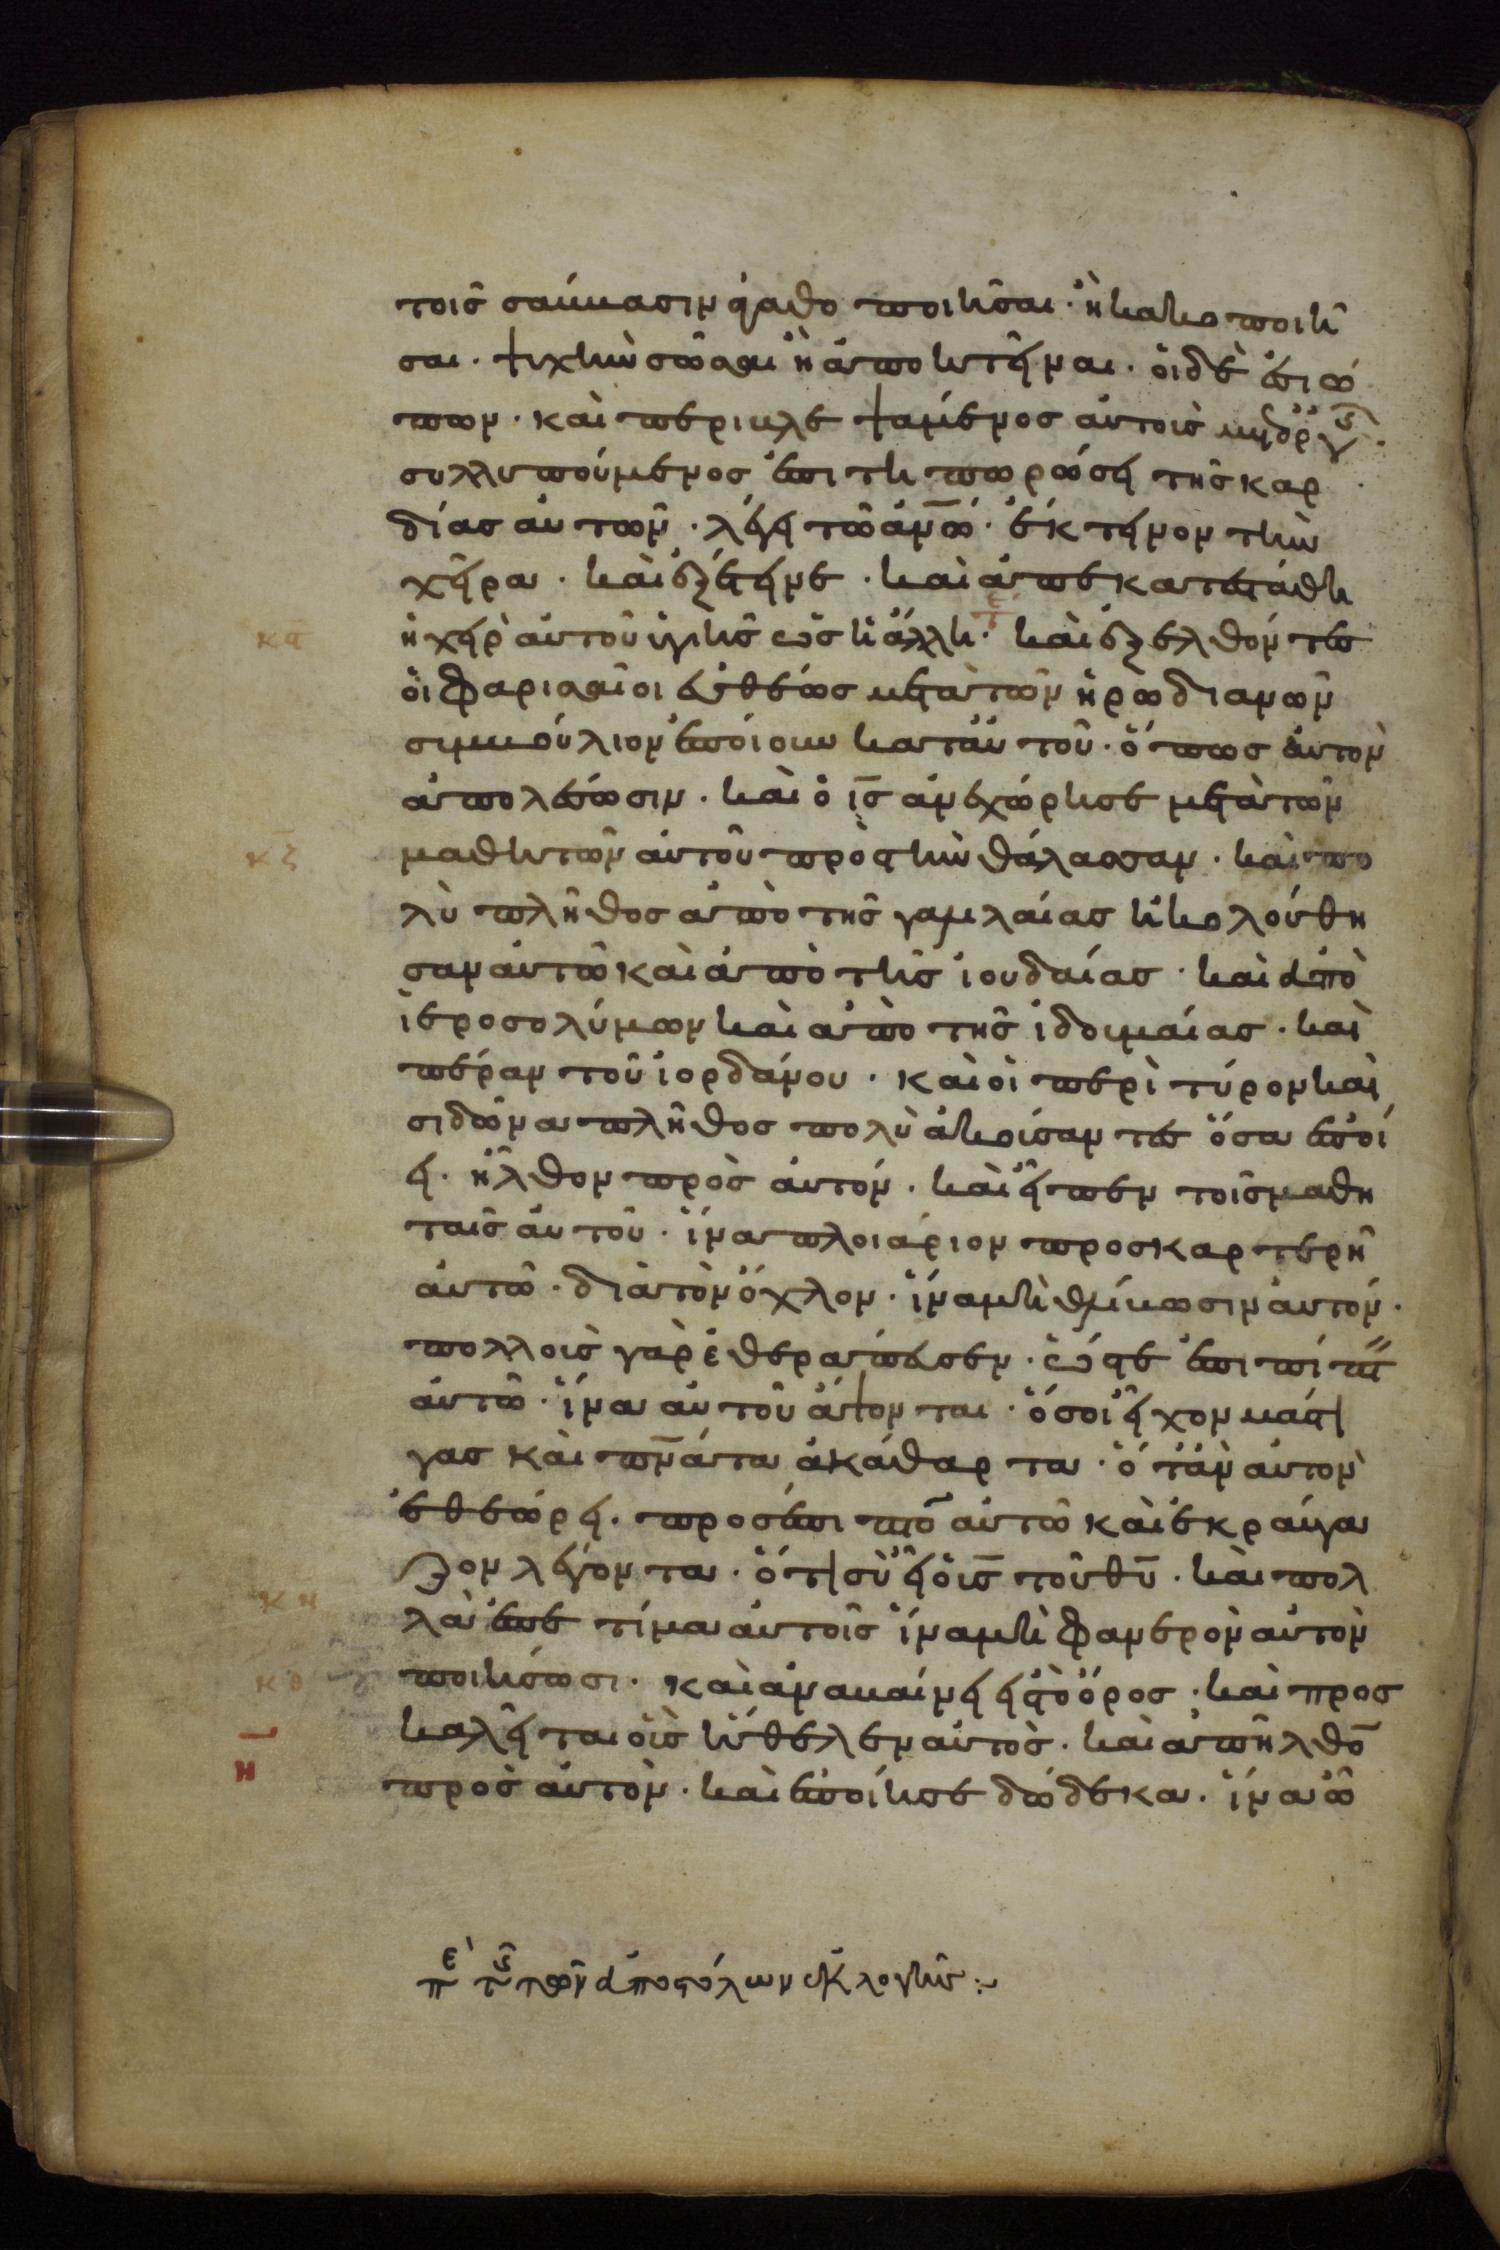 τοῖς σάββασιν ἀγαθο ποιῆσαι· ἢ κακο ποιῆ
σαι· ψυχὴν σῶσαι ἢ ἀπο κτεῖναι· οἱ δὲ ἐσιώ
πων· καὶ περιβλε ψάμενος αὐτοὶς
συλλυπούμενος ἐπι τῆ πωρώσει τῆς καρ
δίας αὐτῶν· λέγει τῶ ἀν̅ω̅· ἔκτεινον τὴν
χεῖρα· καὶ ἐξέτεινε· καὶ ἀπεκατεστάθη
κϛ ἡ χεὶρ αὐτοῦ ὑγιὴς ὡς ἡ ἄλλη· καὶ ἐξελθόντες
οἱ φαρισαῖοι εὐθέως μετὰ τῶν ἡρωδιανῶν
συμβούλιον ἐποίουν κατ αὐτοῦ· ὅπως αὐτὸν
ἀπολέσωσιν· καὶ ὁ ι̅ς̅ ἀνεχώρησε μετὰ τῶν
κζ μαθητῶν αὐτοῦ πρὸς τὴν θάλασσαν· καὶ πο
λὺ πλῆθος ἀπὸ τῆς γαλιλαίας ἠκολούθη
σαν αὐτῶ καὶ ἀπὸ τῆς ἰουδαίας· καὶ ἀπὸ
ἱεροσολύμων καὶ ἀπὸ τῆς ἰδουμαίας· καὶ
πέραν τοῦ ἰορδάνου· καὶ οἱ περὶ τύρον καὶ
σιδῶνα πλῆθος πολὺ ἀκούσαντες ὅσα ἐποί
ει· ἦλθον πρὸς αὐτόν· καὶ εἶπεν τοῖς μαθη
ταῖς αὐτοῦ· ἵνα πλοιάριον προσκαρτερῆ
αὐτῶ· διὰ τὸν ὄχλον· ἵνα μὴ θλίβωσιν αὐτόν·
πολλοὶς γὰρ ἐθεράπευσεν· ὥστε ἐπιπίπτ
αὐτῶ· ἵνα αὐτοῦ ἅψονται· ὅσοι εἶχον μάστι
γας καὶ πν̅άτα ἀκάθαρτα· ὅταν αὐτὸν
ἐθεώρει· προσέπιπτο̅ αὐτῶ καὶ ἐκραύγα
ζον λέγοντα· ὅτι σὺ εἶ ὁ ι̅ς̅ τοῦ θ̅υ̅· καὶ πολ
κη λὰ ἐπετίμα αὐτοῖς ἵνα μὴ φανερὸν αὐτὸν
κθ ποιήσωσι· καὶ ἀναβαίνει εἰς τὸ ὄρος· καὶ προς
καλεῖται οἷς ἤθελεν αὐτὸς· καὶ ἀπῆλθο̅
η πρὸς αὐτὸν· καὶ ἐποίησε δώδεκα· ἵνα ὦ
πε τῆς τῶν ἀποστόλων ἐκλογῆς